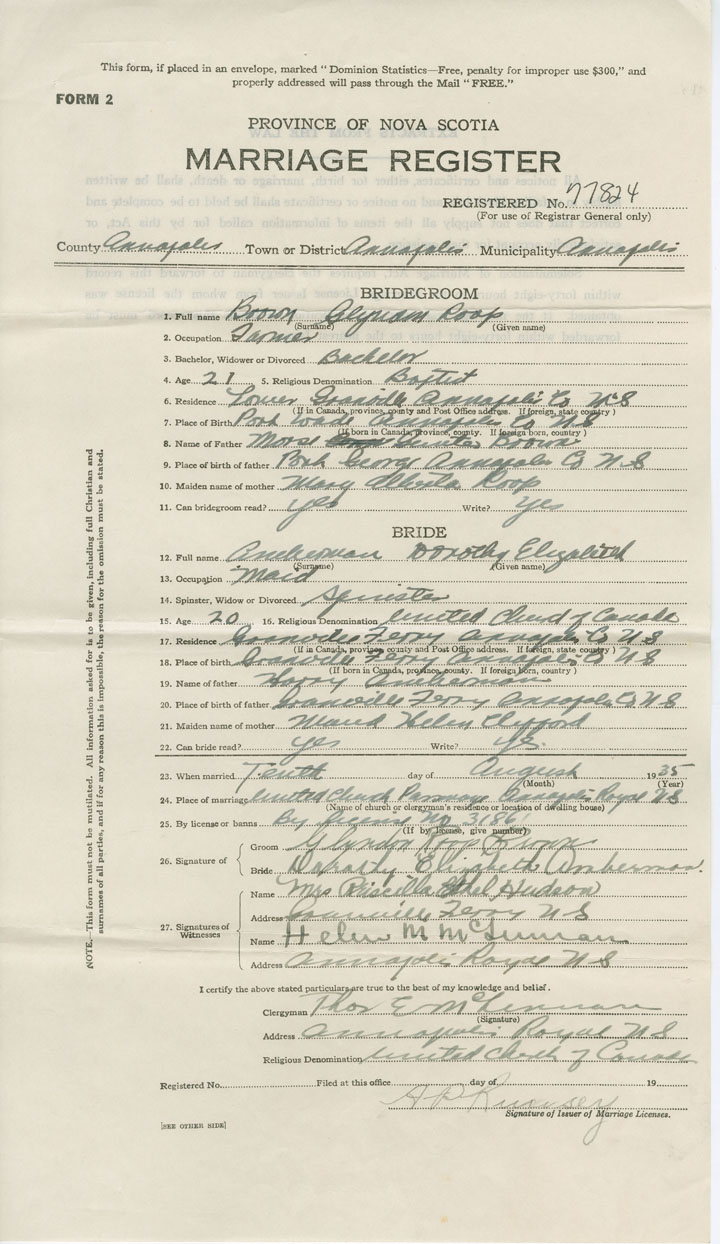 This form, if placed in an envelope, marked "Dominion Statistics—Free, penalty for improper use $300," and
properly addressed will pass through the Mail "FREE."
FORM 2
PROVINCE OF NOVA SCOTIA
MARRIAGE REGISTER
REGISTERED No. 77824
(For use of Registrar General only)
County Annapolis Town or District Annapolis Municipality Annapolis
BRIDEGROOM
1. Full name Brown Roop
(Surname) (Given name)
2. Occupation Farmer
3. Bachelor, Widower or Divorced Bachelor
4. Age 21 5. Religious Denomination Baptist
6. Residence Lower Granville Annapolis Co N.S
(If in Canada, province, county and Post Office address. If foreign, state country)
7. Place of Birth Port Wade Annapolis Co N.S
(If born in Canada, province, county. If foreign born, country)
8. Name of Father Brown
9. Place of birth of father Annapolis Co N S
10. Maiden name of mother Mary Alberta Roop
11. Can bridegroom read? yes Write? yes
BRIDE
12. Full name Amberman Dorothy Elizabeth
(Surname) (Given name)
13. Occupation Maid
14. Spinster, Widow or Divorced Spinster
15. Age 20 16. Religious Denomination United Church of Canada
17. Residence Granville Ferry Annapolis Co N.S
(If in Canada, province, county and Post Office address. If foreign, state country)
18. Place of birth Granville Ferry Annapolis Co N S
(If born in Canada, province, county. If foreign born, country)
19. Name of father Harry Amberman
20. Place of birth of father Granville Ferry Annapolis Co N S
21. Maiden name of mother Maud Helen Clifford
22. Can bride read? yes Write? yes
23. When married Tenth day of August 1935
(Month) (Year)
24. Place of marriage United Church Parsonage Annapolis Royal N S
(Name of church or clergyman's residence or location of dwelling house)
25. By license or banns By license No 3186
(If by license, give number)
26. Signature of
Groom Roop Brown
Bride Dorothy Elizabeth Amberman.
27. Signatures of Witnesses
Name Mrs Priscilla Ethel Hudson
Address Granville Ferry N S
Name Helen M McLennan
Address Annapolis Royal N S
I certify the above stated particulars are true to the best of my knowledge and belief.
Clergyman Thos E McLennan
(Signature)
Address Annapolis Royal N S
Religious Denomination United Church of Canada
Registered No. Filed at this office day of 19
Signature of Issuer of Marriage Licenses.
[SEE OTHER SIDE]
NOTE.—This form must not be mutilated. All information asked for is to be given, including full Christian and
surnames of all parties, and if for any reason this is impossible, the reason for the omission must be stated.